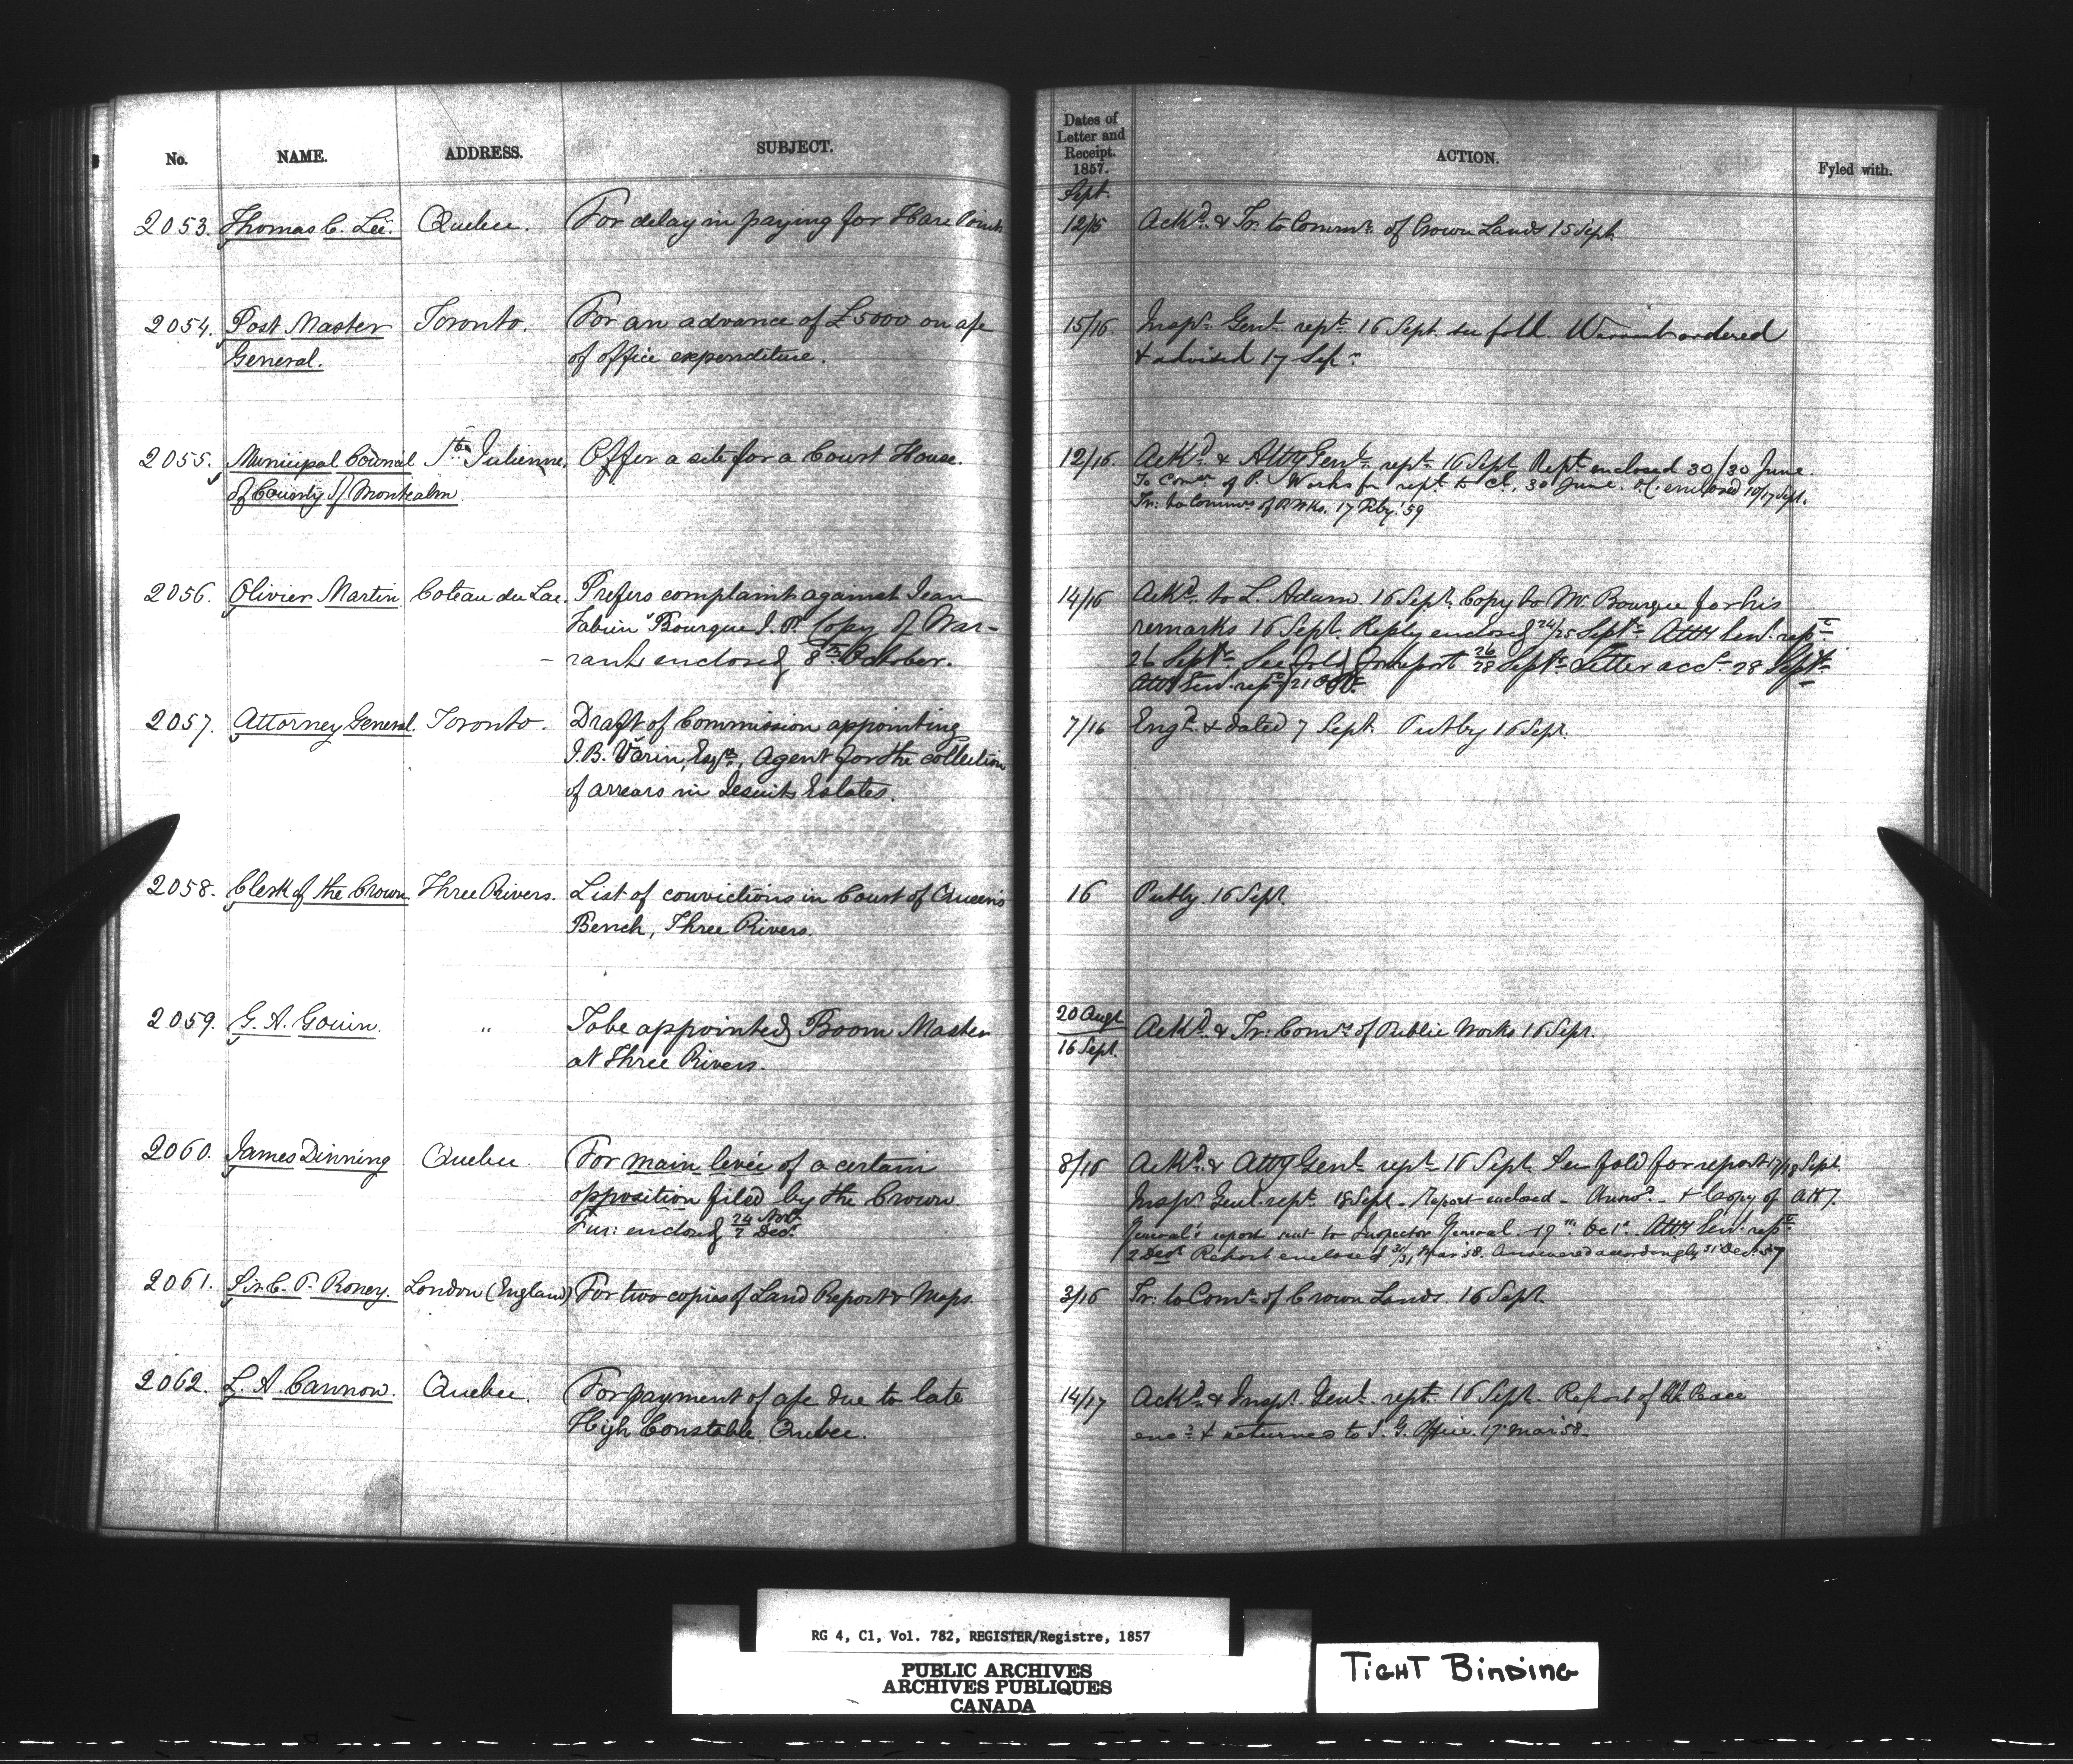 No. NAME. ADDRESS. SUBJECT.
Dates of Letter and Receipt. 1857. ACTION. Fyled with.
Sept.
2053. Thomas C. Lee. Quebec. For delay in paying for Hare Point 12/15 Ackd. & Tr. to Commr. of Crown Lands 15 Sept.
2054. Post Master Toronto. For an advance of £5000 on a/c 15/16 Inspr. Genl. rept. 16 Sept. see fold. Warrant ordered
General. of office expenditure. & advised 17 Sepr.
2055. Municipal Council Ste. Julienne. Offer a site for a Court House. 12/16. Ackd. & Atty Genl. rept. 16 Sept. Rept. enclosed 30/30 June.
of County of Montcalm. To Comr. of P. Works for rept. to Cl. 30 June. enclosed 10/17 Sept.
Tr. to Commrs of P. Wks. 17 Feby. '59
2056. Olivier Martin. Coteau du Lac. Prefers complaint against Jean 14/16 Ackd. to L. Adam 16 Sept. Copy to Mr. Bourque for his
Fabien Bourque J.P. Copy of War- remarks 16 Sept. Reply enclosed 24/25 Septr. Atty Genl. rept.
- rant enclosed 8th October. 26 Septr. See fold for report 26/28 Septr. Letter acc. 28 Septr.
Atty Genl. rept. 21 Oct.
2057. Attorney General. Toronto. Draft of Commission appointing 7/16 Engd. & dated 7 Sept. Put by 16 Sept.
J.B. Varin, Esqre., Agent for the collection
of arrears in Jesuits Estates.
2058. Clerk of the Crown. Three Rivers. List of convictions in Court of Queen's 16 Put by 16 Sept.
Bench, Three Rivers.
2059. G. A. Gouin. " To be appointed Boom Master 20 Augt 16 Sept. Ackd. & Tr: Comr. of Public Works 16 Sept.
at Three Rivers.
2060. James Dinning Quebec. For main levée of a certain 8/16 Ackd. & Atty Genl. rept. 16 Sept. See fold for report 17/18 Sept.
opposition filed by the Crown Inspr. Genl. rept. 18 Sept. Report enclosed & Copy of Atty.
Fur: enclosed 24 Novr. 2 Decr. General's report sent to Inspector General 19th Oct. Atty Genl. rept.
2 Decr. Report enclosed Mar 58. Answered accordingly 31 Dec. 57
2061. Sir C. P. Roney. London (England) For two copies of Land Report & Maps. 3/16 Tr. to Comr. of Crown Lands. 16 Sept.
2062. L. A. Cannon. Quebec. For payment of a/c due to late 14/17 Ackd. & Inspr. Genl. rept. 16 Sept. Report of Peace
High Constable, Quebec. encd. & returned to I. G. Office. 17 Mar 58.
RG 4, C1, Vol. 782, REGISTER/Registre, 1857
PUBLIC ARCHIVES
ARCHIVES PUBLIQUES
CANADA
TIGHT BINDING